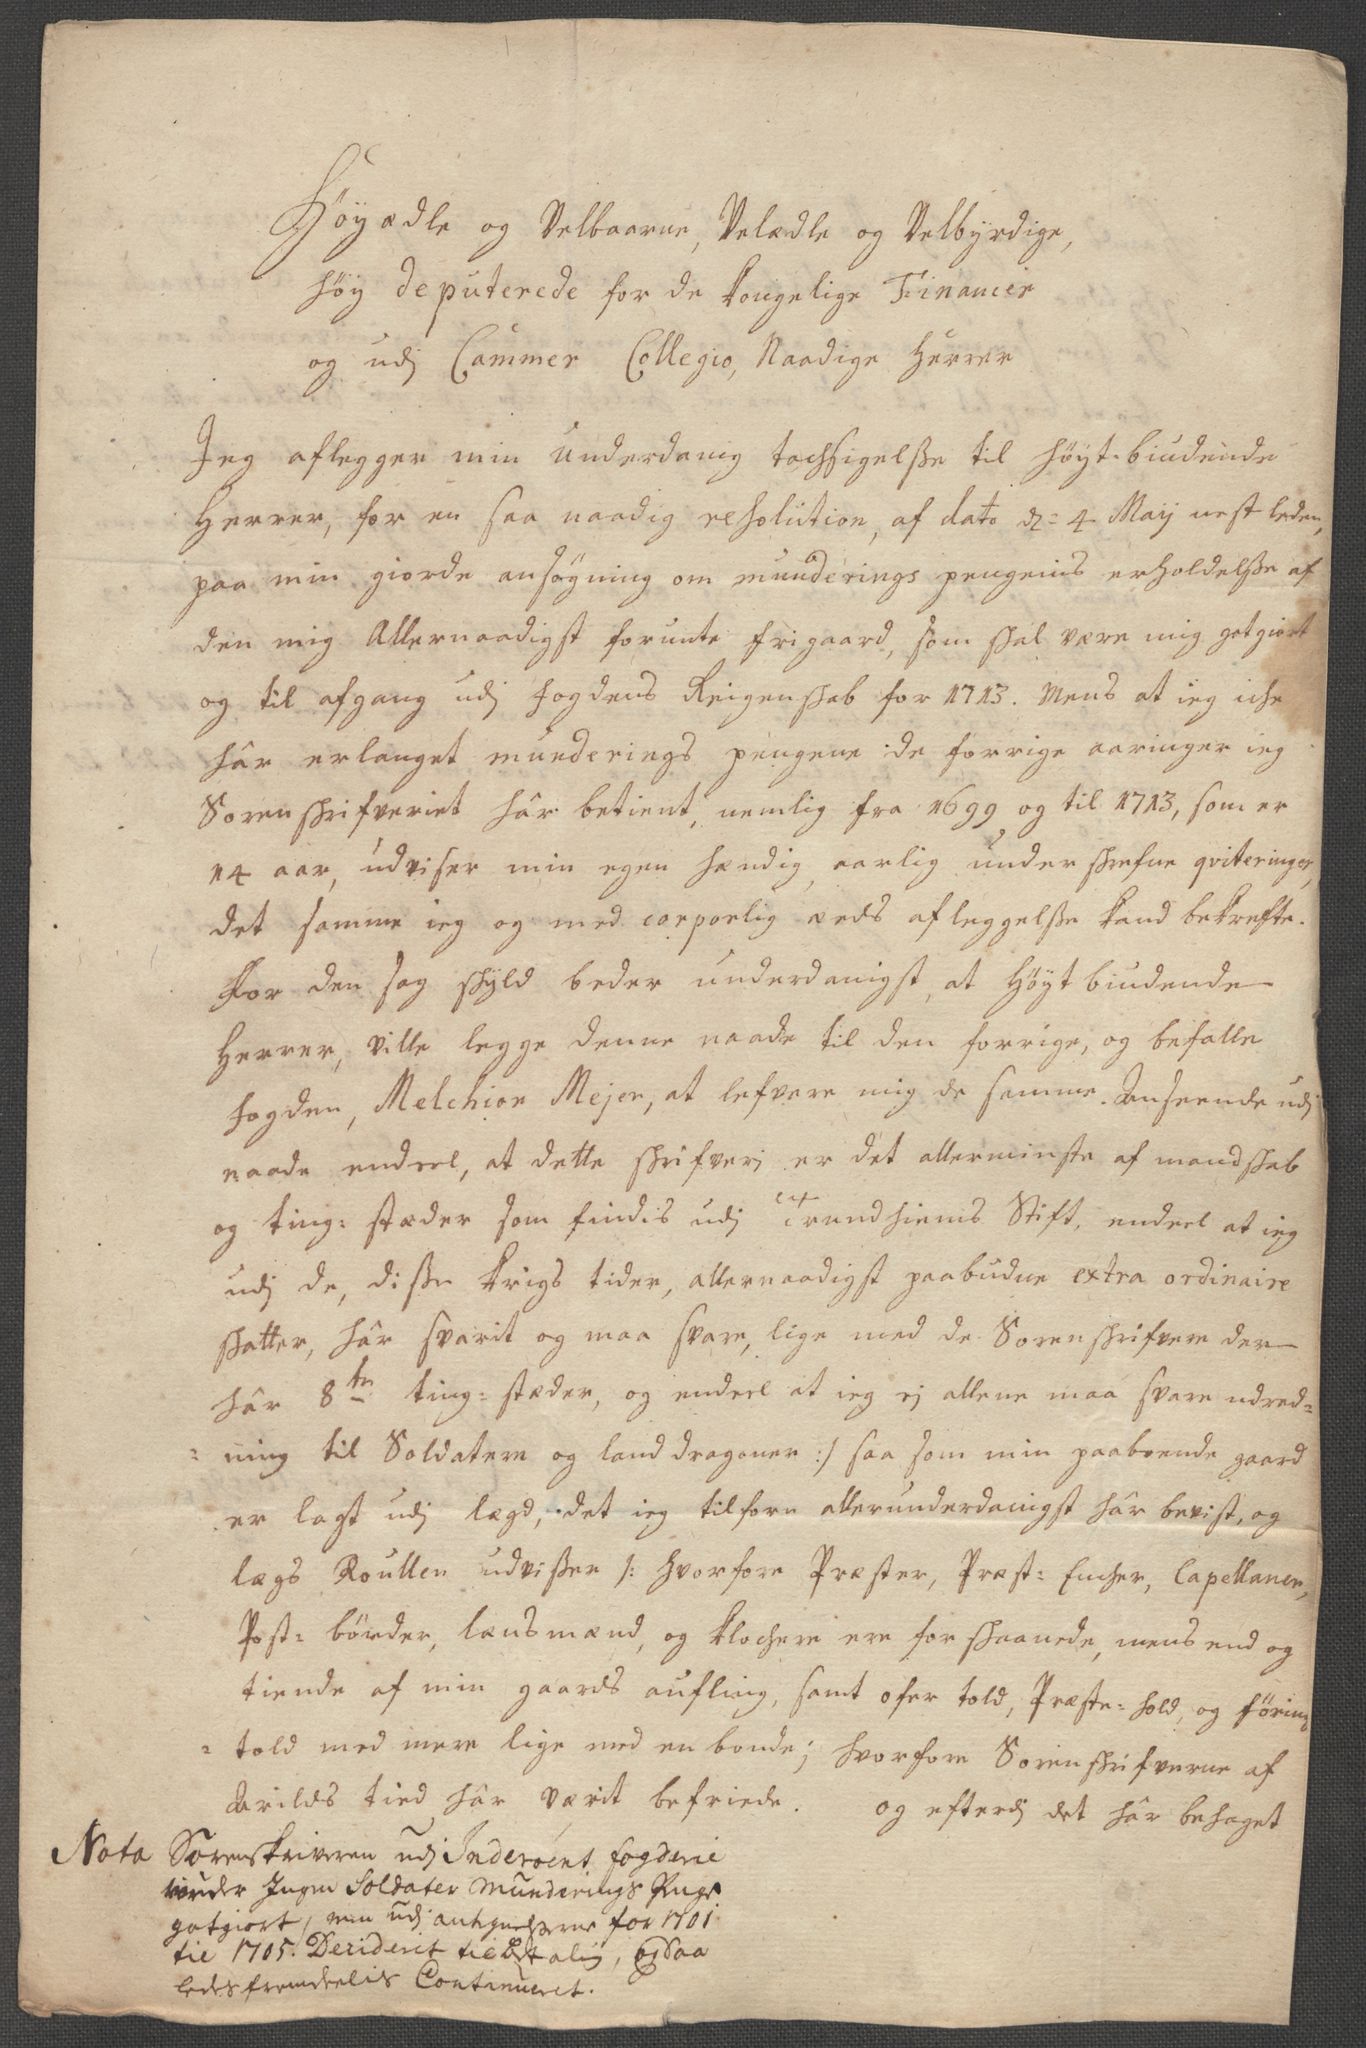 Höyædle og Velbaarne, Velædle og Velbyrdige,
höy deputerede for de kongelige Financer
og udj Cammer Collegio, Naadige Herrer
Jeg aflegger min underdanig tachsigelsse til höyt-biudende
Herrer, for en saa naadig resolution, af dato d: 4 Maij nest leden,
paa min giorde ansögning om munderings pengenis erholdelsse af
den mig Allernaadigst forunte frigaard, som skal være mig gotgiort
og til afgang udj fogdens Reigenskab for 1713. Mens at ieg iche
hâr erlanget munderings pengene de forrige aaringer ieg
Sorenskrifveriet hâr betient, nemlig fra 1699 og til 1713, som er
14 aar, udviser min egen hændig aarlig underskrefne qviteringer,
det samme ieg og med corporlig eeds afleggelsse kand bekrefte.
For den sag skyld beder underdanigst, at Höyt biudende
Herrer, ville legge denne naade til den forrige, og befalle
fogden, Melchior Mejer, at lefvere mig de samme. Anseende udj
naade endeel, at dette skrifverj er det allerminste af mandskab
og ting: stæder som findis udj Trundhiems Stift, endeel at ieg
udj de, disse krigs tider, allernaadigst paabudne extra ordinaire
skatter, hâr svarit og maa svare, lige med de Sorenskrifvere der
hâr 8te ting: stæder, og endeel at ieg ej allene maa svare udred=
=ning til Soldatere og land dragoner :/ saa som min paaboende gaard
er lagt udj lægd, det ieg tilforn allerunderdanigst hâr bevist, og
lægs Roullen udvisser /: hvorfore Præster, Præst: Encher, Capellaner,
Post: bönder, lænsmænd, og klochere ere forskaanede, mens end og
tiende af min gaards aufling, samt ofer told, Præste: hold, og föring
= told med mere lige med en bonde; hvorfore Sorenskrifverne af
Arilds tied hâr værit befriede. og efterdj det hâr behaget
Nota Sorenskriveren udj Inderøens fogderie
vorder Ingen Soldater Munderings Penge
gotgiort, men udj antegnelserne for 1701
til 1705. Deciderit til betaling, og saa
ledes fremdeelis Continuerit.